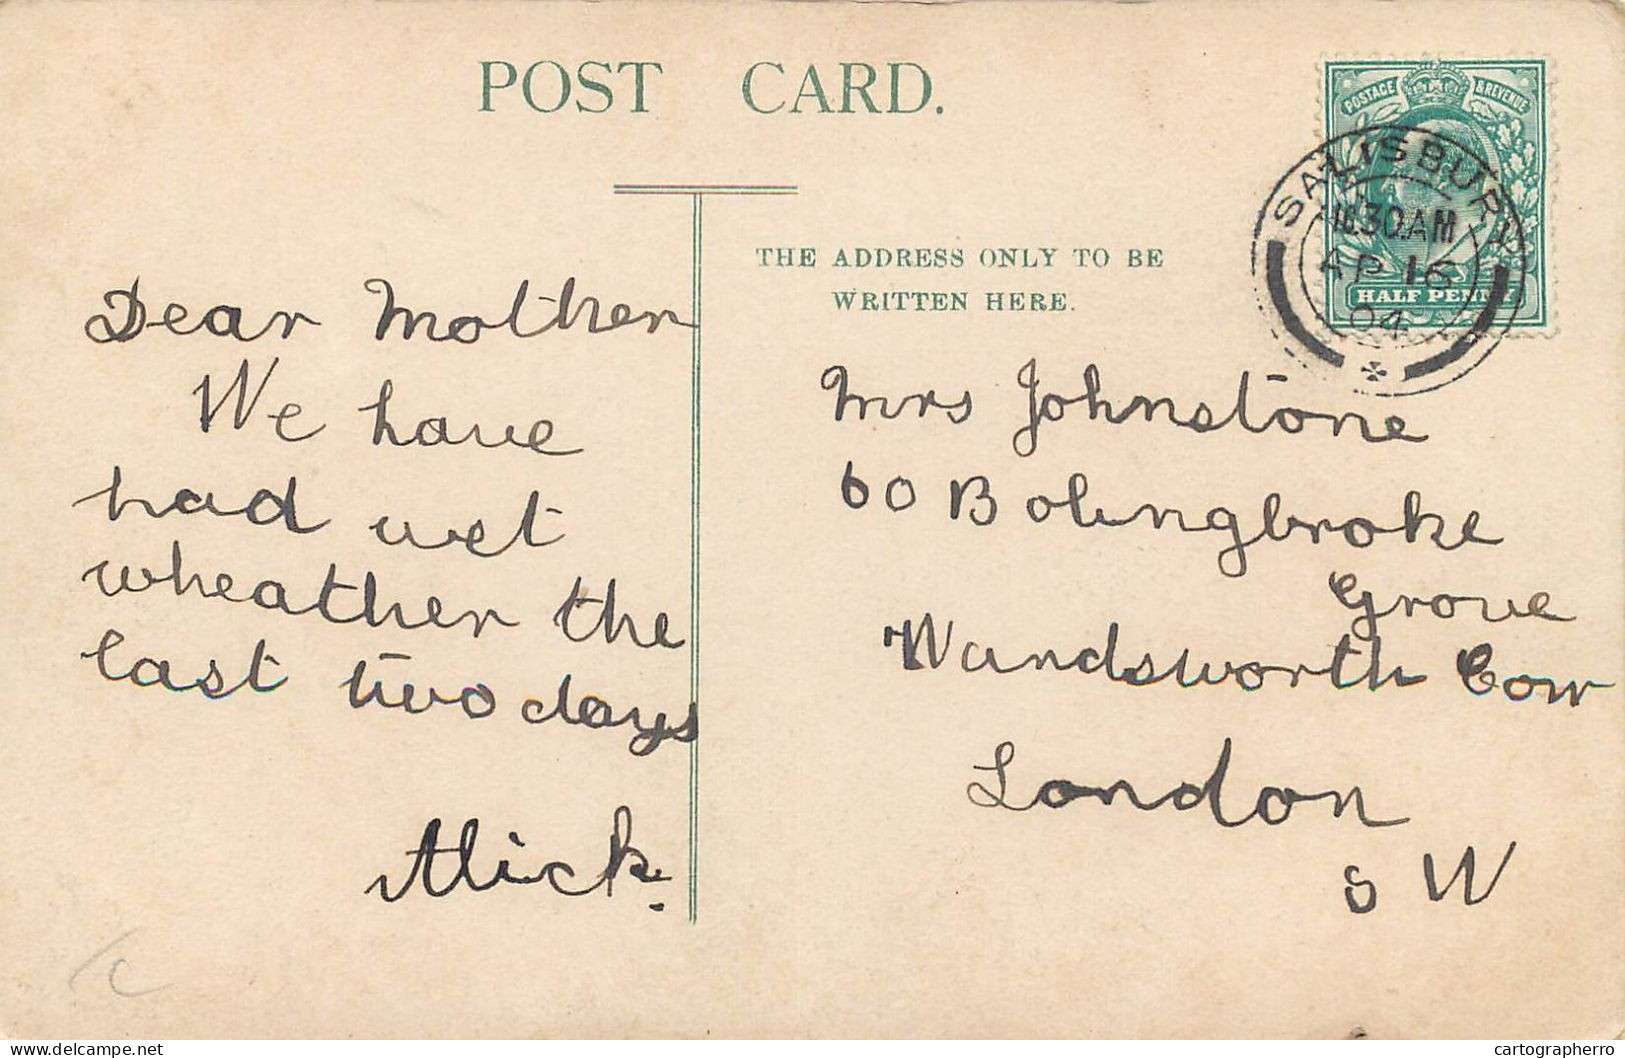 POST CARD.
POSTAGE & REVENUE
SALISBURY
30 AM
AP 16
04
HALF PENNY
THE ADDRESS ONLY TO BE
WRITTEN HERE.
Dear Mother
We have
had wet
wheather the
last two days
Mick.
Mrs Johnstone
60 Bolingbroke
Grove
Wandsworth Com
London
S W
cartographerro